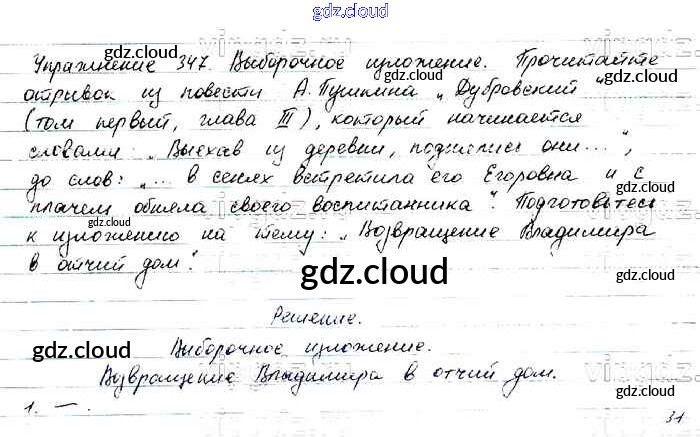 gdz.cloud
Упражнение 347. Выборочное изложение. Прочитайте
отрывок из повести А. Пушкина „Дубровский"
(том первый, глава III), который начинается
словами: „Выехав из деревни, поднялись они...",
до слов: „... в сенях встретила его Егоровна и с
плачем обняла своего воспитанника". Подготовьтесь
к изложению на тему: „Возвращение Владимира
в отчий дом".
gdz.cloud
Решение.
Выборочное изложение.
Возвращение Владимира в отчий дом.
1. —.
31